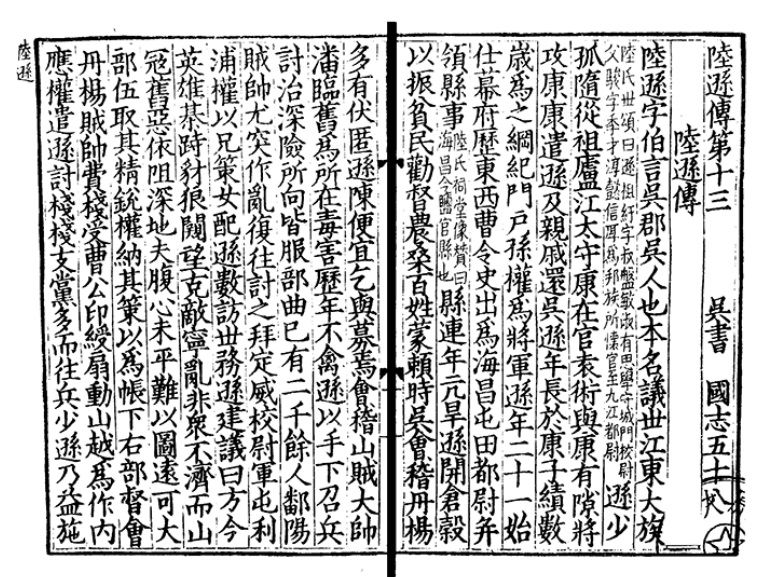 陸遜傳第十三 吳書 國志五十八
陸遜傳
陸遜字伯言吳郡吳人也本名議丗江東大族
陸氏丗頌曰遜祖紆字叔盤敏淑有思學守城門校尉
父駿字季才淳懿信厚爲邦族所懷官至九江都尉
遜少
孤隨從祖廬江太守康在官袁術與康有隙將
攻康康遣遜及親戚還吳遜年長於康子績數
歲爲之綱紀門戶孫權爲將軍遜年二十一始
仕幕府歷東西曹令史出爲海昌屯田都尉并
領縣事
陸氏祠堂像贊曰
海昌今鹽官縣也
縣連年亢旱遜開倉穀
以振貧民勸督農桑百姓蒙賴時吳會稽丹楊
多有伏匿遜陳便宜乞與募焉會稽山賊大帥
潘臨舊爲所在毒害歷年不禽遜以手下召兵
討治深險所向皆服部曲已有二千餘人鄱陽
賊帥尤突作亂復往討之拜定威校尉軍屯利
浦權以兄策女配遜數訪丗務遜建議曰方今
英雄棊跱豺狼闚望克敵寧亂非衆不濟而山
冦舊惡依阻深地夫腹心未平難以圖遠可大
部伍取其精銳權納其策以爲帳下右部督會
丹楊賊帥費棧受曹公印綬扇動山越爲作內
應權遣遜討棧棧支黨多而往兵少遜乃益施
陸遜